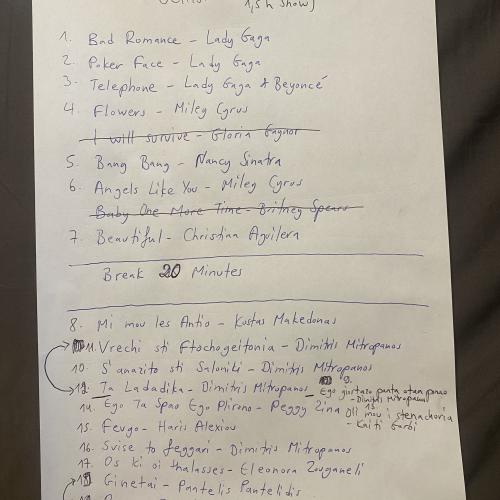 1,5 h show)
1. Bad Romance - Lady Gaga
2. Poker Face - Lady Gaga
3. Telephone - Lady Gaga & Beyoncé
4. Flowers - Miley Cyrus
I will survive - Gloria Gaynor
5. Bang Bang - Nancy Sinatra
6. Angels Like You - Miley Cyrus
Baby One More Time - Britney Spears
7. Beautiful - Christina Aguilera
Break 20 Minutes
8. Mi mou les Antio - Kostas Makedonas
11. Vrechi sti Ftochogeitonia - Dimitris Mitropanos
10. S'anazito sti Saloniki - Dimitris Mitropanos
12. Ta Ladadika - Dimitris Mitropanos
9. Ego giortazo panta otan ponao
- Dimitris Mitropanos
14. Ego Ta Spao Ego Plirono - Peggy Zina
13. Oli mou i stenachoria
- Kaiti Garbi
15. Feugo - Haris Alexiou
16. Svise to feggari - Dimitris Mitropanos
17. Os ki oi thalasses - Eleonora Zouganeli
Ginetai - Pantelis Pantelidis